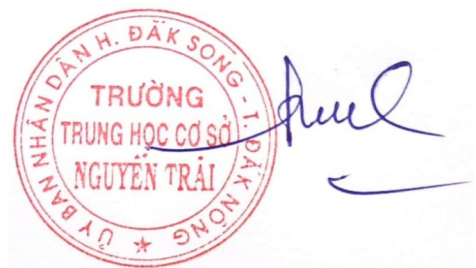 ỦY BAN NHÂN DÂN H. ĐĂK SONG - T. ĐĂK NÔNG
TRƯỜNG
TRUNG HỌC CƠ SỞ
NGUYỄN TRÃI